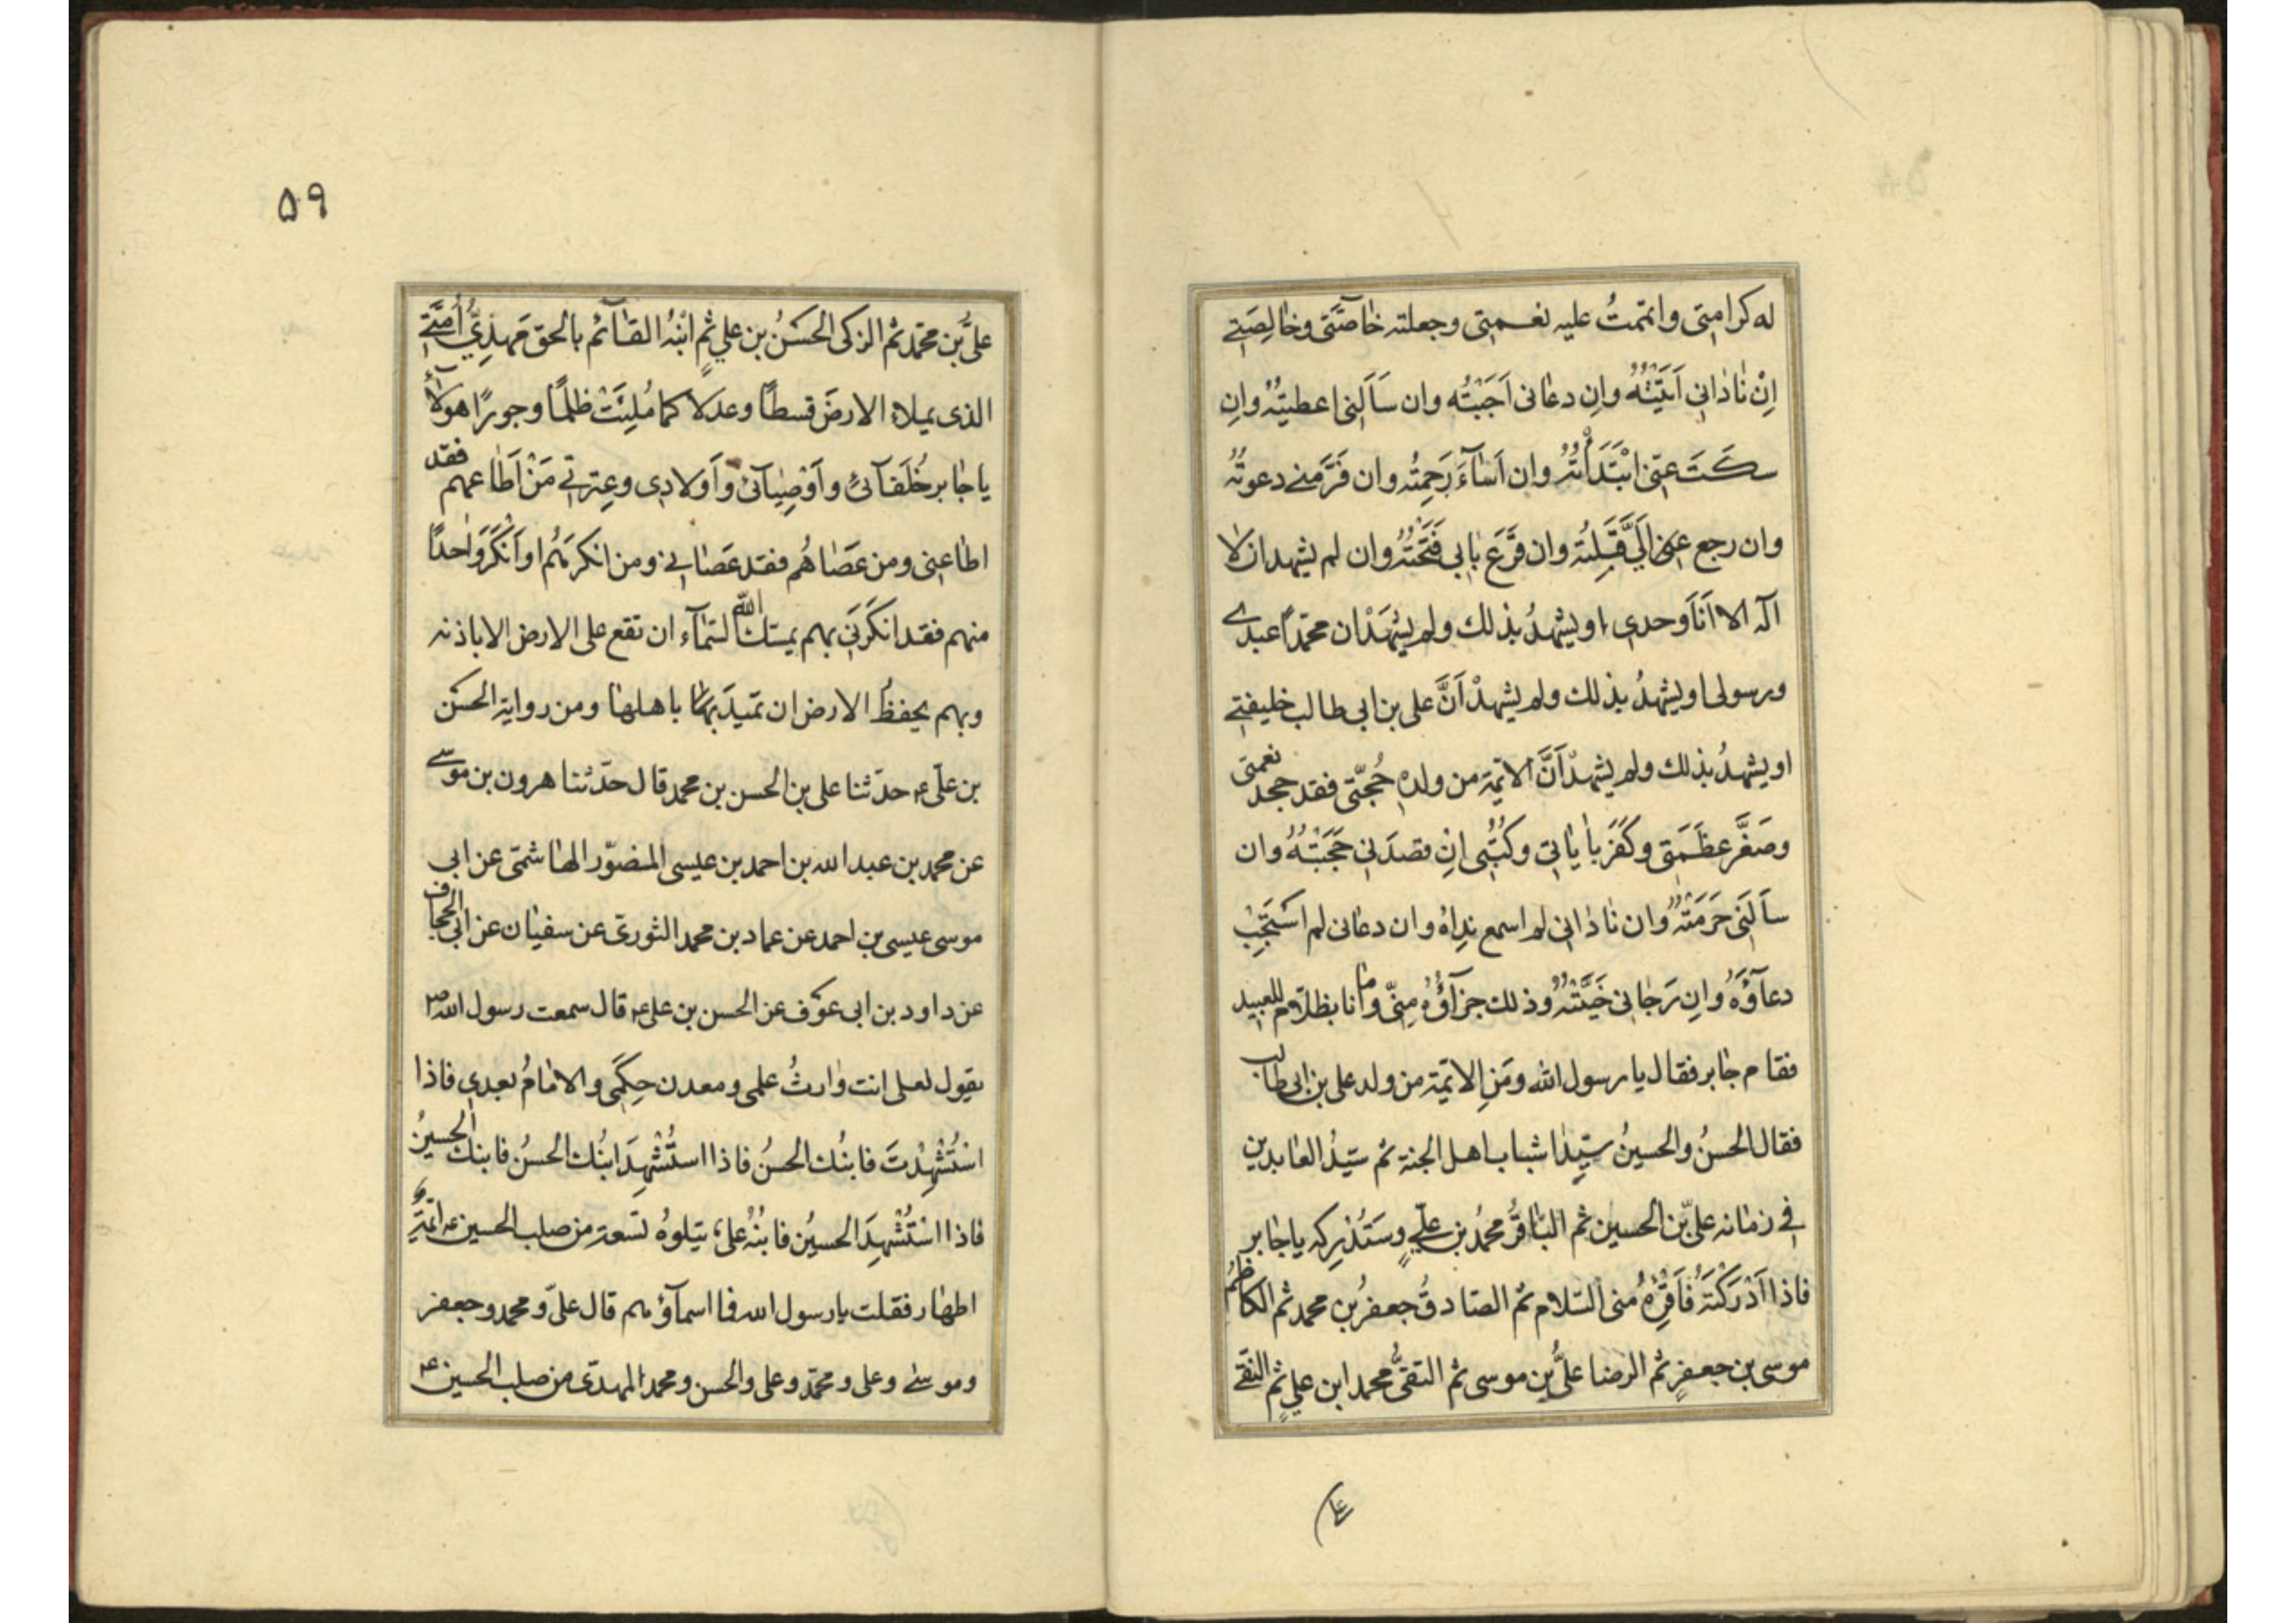 له كرامتى واتممتُ عليه نعـمتى وجعلته خاصَّتى وخالِصَتى
اِنْ نادانى اَتَيْتُهُ وانِ دعانى اَجَبْتُه وان سَاَلنى اعطيتُهُ وانِ
سـكَـتَ عنّى ابْتَدَأْتُهُ وان اَسَآءَ رَحِمتُه وان فَرَّ منى دعوتُهُ
وان رجع الَىَّ قَبِلتُه وان قرَّعَ بابى فَتَحْتُهُ وان لم يشهد ان لا
آله الا اَنَا وحدى او يشهدُ بذلك ولم يشهَدْ ان محمّداً عبدى
ورسولى او يشهدُ بذلك ولم يشهدْ اَنَّ على بن ابى طالب خليفتى
او يشهدُ بذلك ولم يشهدْ اَنَّ الائمة من ولدهِ حُجَجى فقد جحد نعمتى
وصَغَّر عظَمَتى وكَفَرَ باياتى وكُتُبى اِن قصدَنى حَجَبْتُهُ وان
سأَلَنى حَرَمتُهُ وان نادانى لم اسمع نداهُ وان دعانى لم اَسْتَجِبْ
دعآؤَهُ وانِ رَجانى خَيَّبْتُهُ وذلك جزآؤُهُ مِنّى وما انا بظلّام للعبيد
فقام جابر فقال يا رسول الله ومَنِ الائمة من ولد على بن ابى طالب
فقال الحسنُ والحسينُ سيّدا شباب اهل الجنة ثم سيّدُ العابدين
فى زمانه علىّ بن الحسين ثم الباقرُ محمدُ بن علىٍّ وستُدْرِكه يا جابر
فاذا اَدْرَكْتَهُ فَاَقْرِهُ منى السّلام ثم الصادقُ جعفرُ بن محمد ثم الكاظمُ
موسى بن جعفرٍ ثم الرضا علىُّ بن موسى ثم التقىُّ محمد ابن علىٍ ثم النقى
۵۹
علىُّ بن محمّد ثم الزكى الحسنُ بن علىٍ ثم ابْنُهُ القآئم بالحق مَهدِىُّ اُمَّتى
الذى يملاء الارضَ قسطاً وعدلا كما مُلِئَتْ ظلماً وجوراً هولآء
يا جابر خُلَفآئى واَوْصِيآئى واَولادى وعِترتى مَنْ اَطاعهم فقد
اطاعنى ومن عَصاهُم فقد عَصانى ومن انكرهُم او اَنْكَرَ واحداً
منهم فقد انكَرَنى بهم يمسك الله السّمآء ان تقع على الارض الا باذنه
وبهم يحفظُ الارض ان تميدَ باهلها ومن رواية الحسن
بن علىّ ع حدّثنا على بن الحسن بن محمد قال حدّثنا هرون بن موسى
عن محمد بن عبد الله بن احمد بن عيسى المنصور الهاشمى عن ابى
موسى عيسى بن احمد عن عماد بن محمد الثورى عن سفيان عن ابى الجحاف
عن داود بن ابى عوف عن الحسن بن على ع قال سمعت رسول الله ص
يقول لعلى انت وارثُ علمى ومعدن حِكَمى والامامُ بعدى فاذا
اسْتُشْهِدْتَ فابنُك الحسنُ فاذا استُشْهِدَ ابنُك الحسنُ فابنك الحسينُ
فاذا اسْتُشْهِدَ الحسينُ فابنُهُ علىٌ يتلوهُ تسعة من صلب الحسين ع ائمّةٌ
اطهار فقلت يا رسول الله فما اسمآؤهم قال علىّ ومحمد وجعفر
وموسى وعلى ومحمّد وعلى والحسن ومحمد المهدىّ من صلب الحسين ع